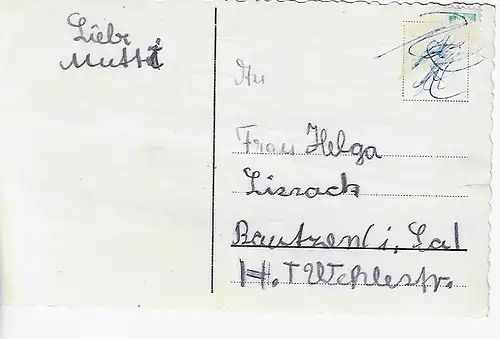 Liebe
Mutti
An
Frau Helga
Lissack
Bautzen i. Sa
H. T Wehlestr.